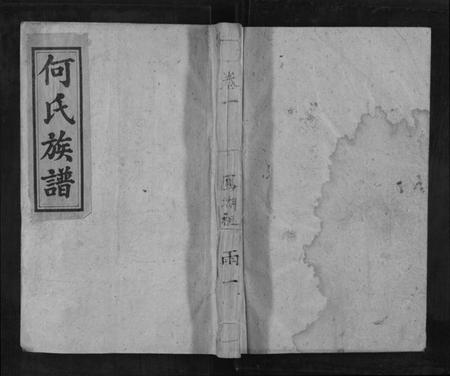 何氏族譜
卷一
鳳湖祖
雨一